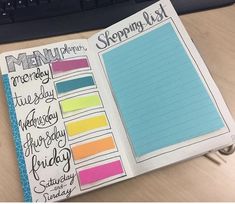 MENU planner
monday
tuesday
Wednesday
thursday
friday
Saturday
and
Sunday
Shopping list